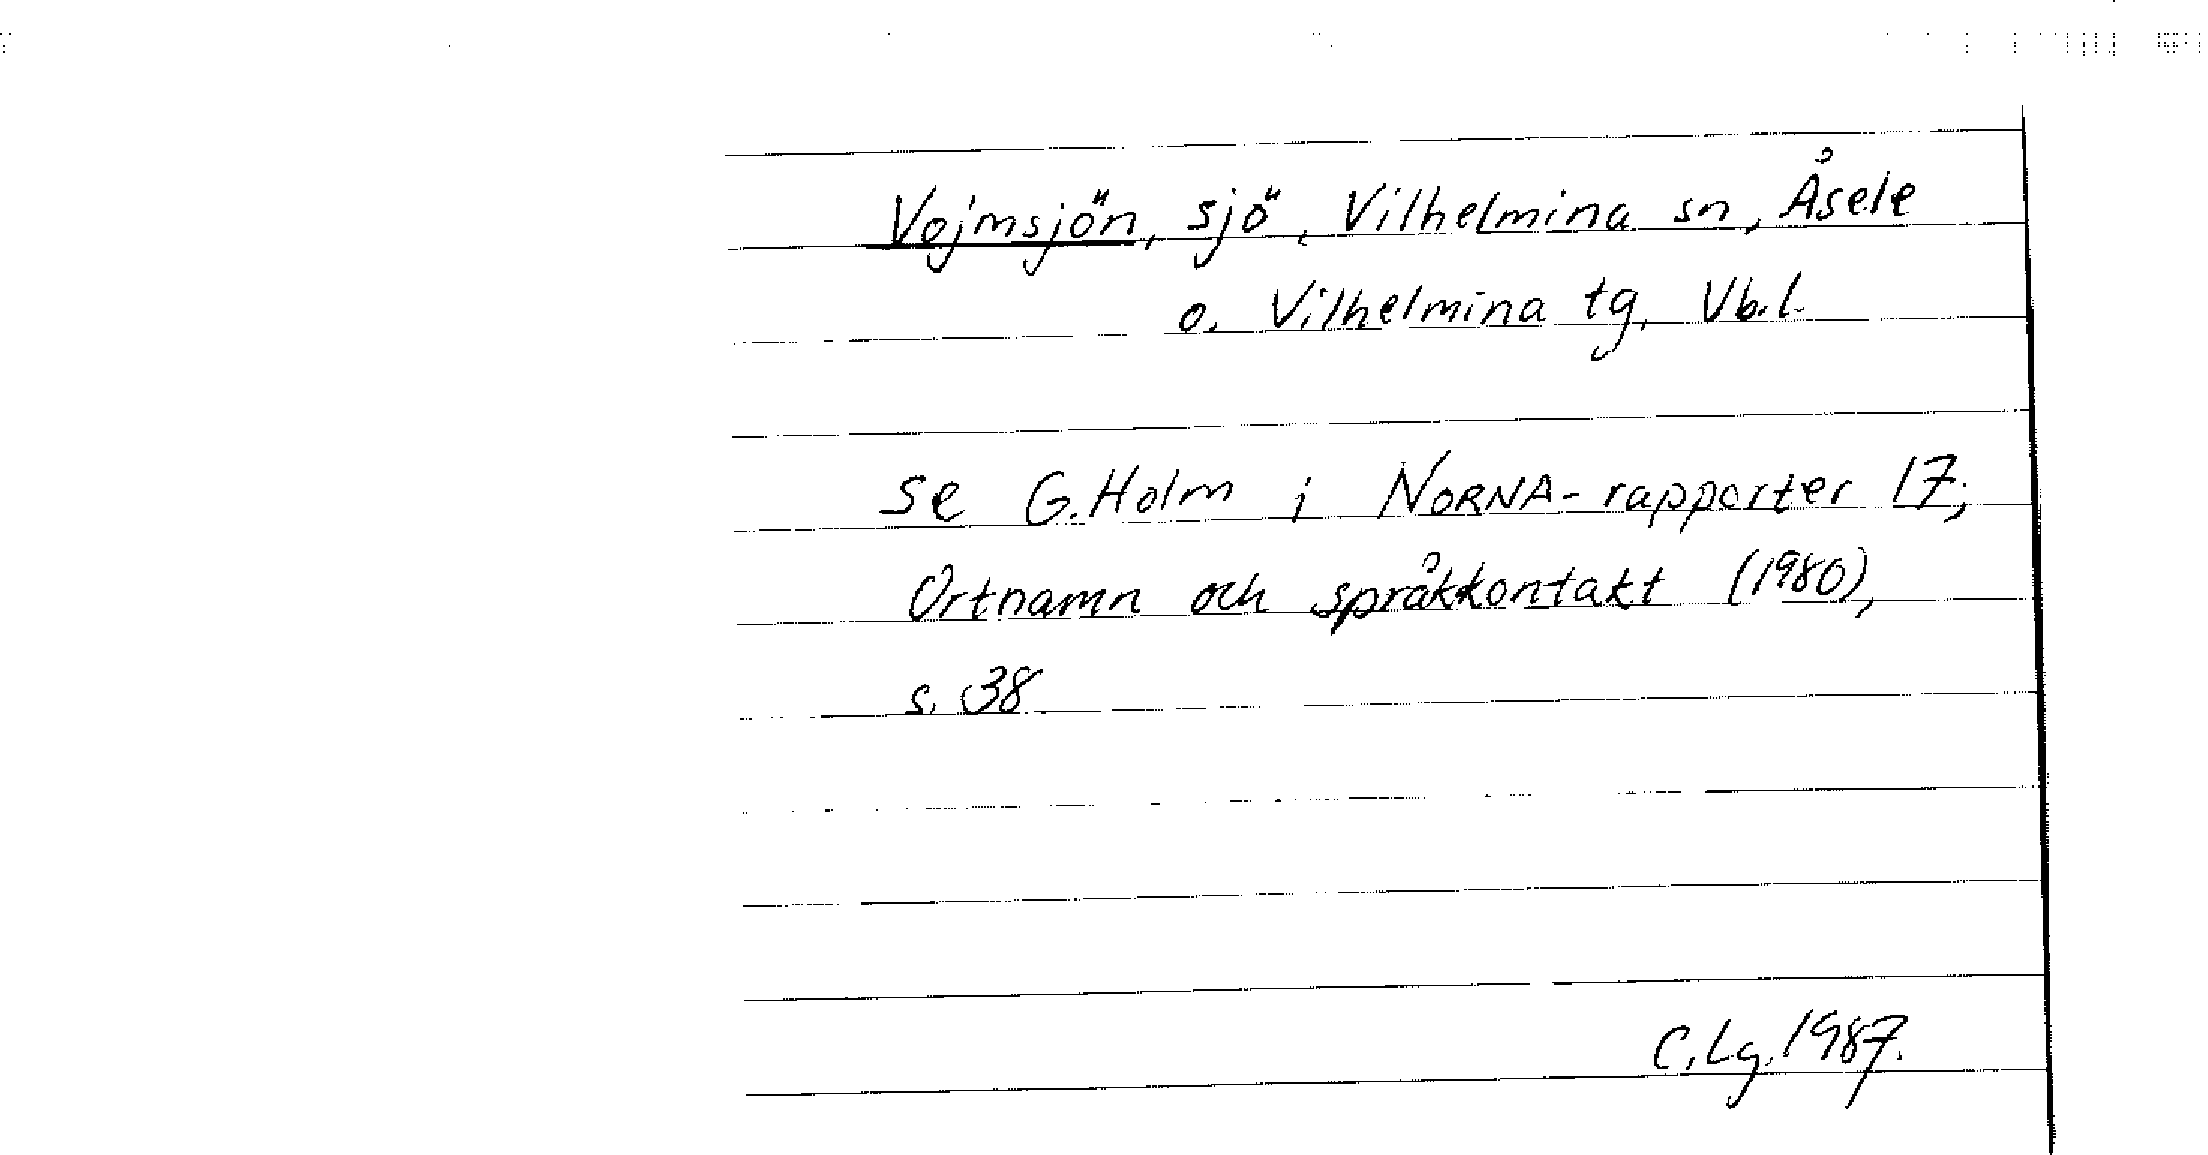 Vojmsjön, sjö, Vilhelmina sn, Åsele
o. Vilhelmina tg, Vb.l.
se G. Holm i NORNA-rapporter 17;
Ortnamn och språkkontakt (1980),
s. 38
C. Lg. 1987.